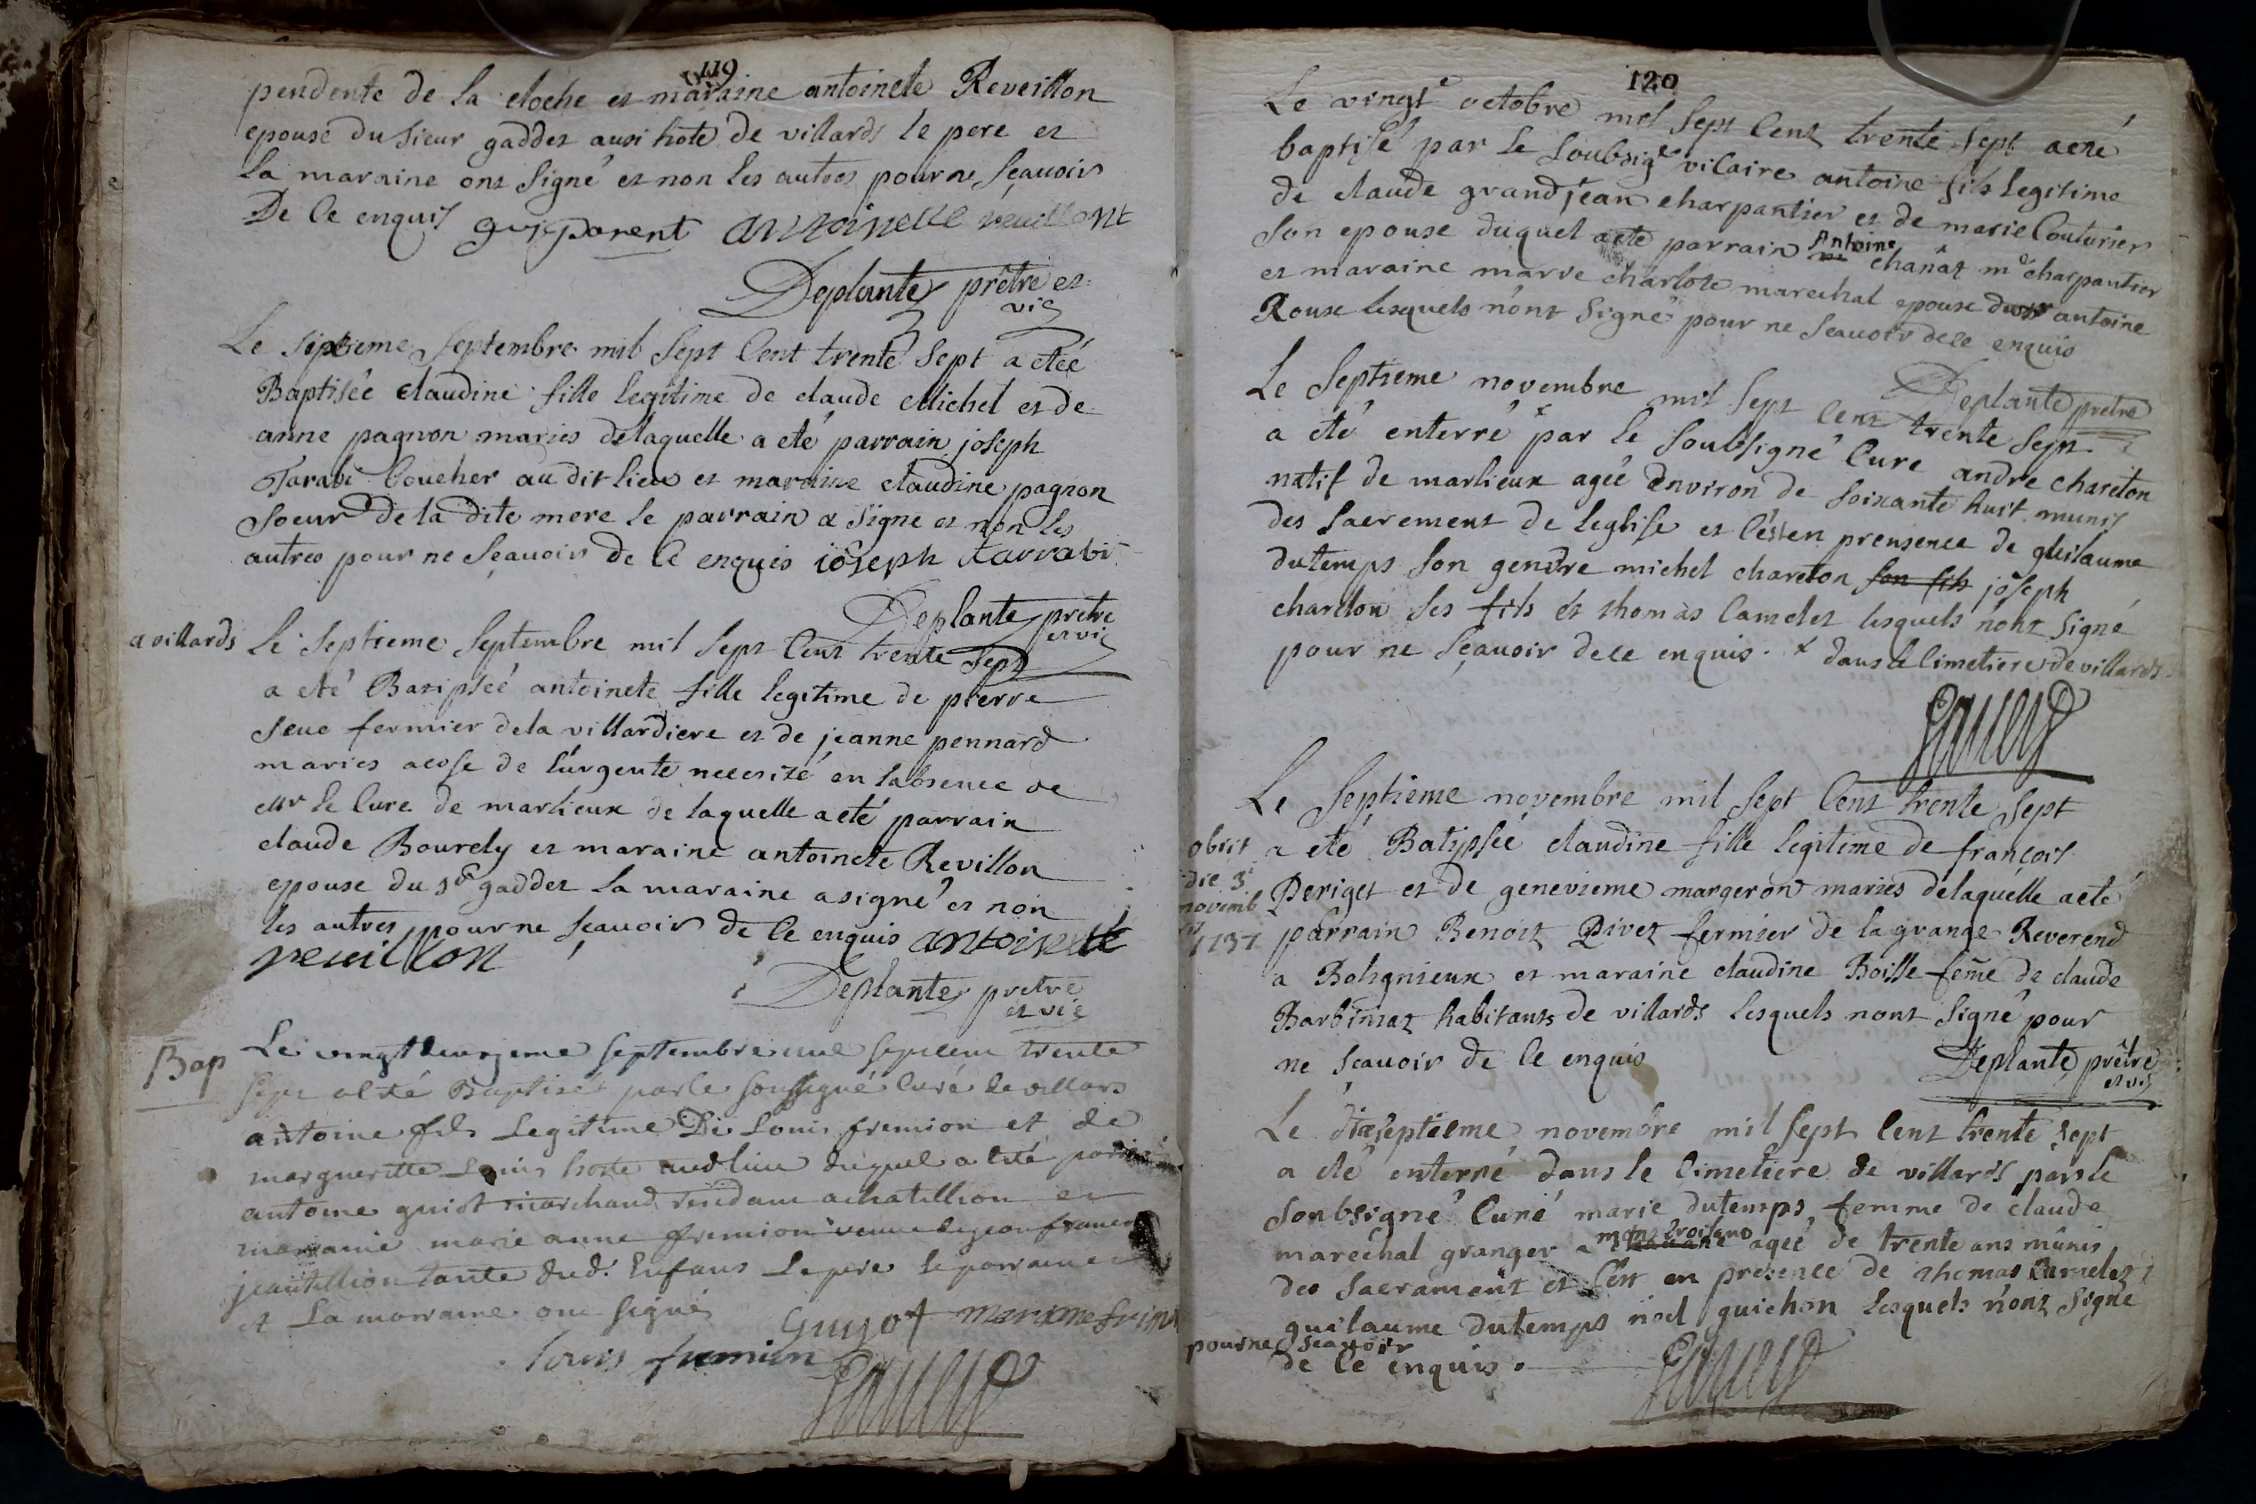 119
pendente de la cloche et maraine antoinete Reveillon
epouse du sieur gaddet ausi hote de villards le pere et
la maraine ont signé et non les autres pour ne sçauoir
De ce enquis guy parent antoinette reuillont
Deplante prêtre et
vic
Le septieme septembre mil sept cent trente sept a eteé
Baptisée claudine fille legitime de claude Michel et de
anne pagnon maries de laquelle a eté parrain joseph
Tarabi boucher au dit lieu et maraine claudine pagnon
soeur de la dite mere le parrain a signe et non les
autres pour ne sçauoir de ce enquis ioseph tarrabi
Deplante prêtre
et vic
a villards Le septieme septembre mil sept cent trente sept
a eté Batipseé antoinete fille legitime de pierre
seue fermier de la villardiere et de jeanne pennard
maries acose de l'urgente necesité en labsence de
Mr le Cure de marlieux de laquelle a eté parrain
claude Bourdy et maraine antoinete Revillon
epouse du sr gaddet la maraine a signé et non
les autres pour ne sçauoir de ce enquis antoinette
reuillon
Deplante prêtre
et vic
Bap
Le vingt deuxieme septembre mil sept cent trente
sept a eté Baptisé par le soussigné curé de villars
antoine fils Legitime De Louis fremion et de
margueritte hoste aud lieu duquel a eté parrain
antoine guiot marchand residant a chatillion et
marraine marie anne fremion veuue de jean francois
jeantillion tante dud. Enfans Le pere le parrain
et La marraine ont signés
Guyot marianne frimi
louis fremion
120
Le vingte octobre mil sept cent trente sept a eté
baptisé par le soubsigé vicaire antoine fils legitime
de claude grandjean charpantier et de marie Couturier
son epouse duquel a eté parrain Antoine chanat me charpantier
et maraine charlote marechal epouse antoine
Rouse lesquels n'ont signé pour ne sçauoir de ce enquis
Deplante prêtre
Le septieme novembre mil sept cent trente sept
a été enterré x par le soubsigné Cure andre chareton
natif de marlieux ageé d'environ de soixante huit munis
des sacrement de leglise et c'ést en prensence de guilaume
dutemps son gendre michel chareton son fils joseph
chareton ses fils et thomas camelet lesquels n'ont signé
pour ne sçauoir de ce enquis. x dans le cimetiere de villards
Le septieme novembre mil sept cent trente sept
a eté Batipseé claudine fille legitime de françois
obiit
die 3
novemb
1737
Periget et de genevieme margeron maries de laquelle a eté
parrain Benoit Pivet fermier de la grange Reverend
a Bolignieux et maraine claudine Boille feme de claude
Barbimat habitants de villards lesquels n'ont signé pour
ne sçauoir de ce enquis
Deplante prêtre
et vic
Le dixseptieme novembre mil sept cent trente sept
a eté enterré dans le cimetiere de villards par le
soubsigné Curé marie dutemps femme de claude
maréchal granger a mont croisand ageé de trente ans munis
des sacrament et c'est en presence de thomas Camelet
guilaume dutemps noel guichon lesquels n'ont signé
pour ne sçauoir
de ce enquis.